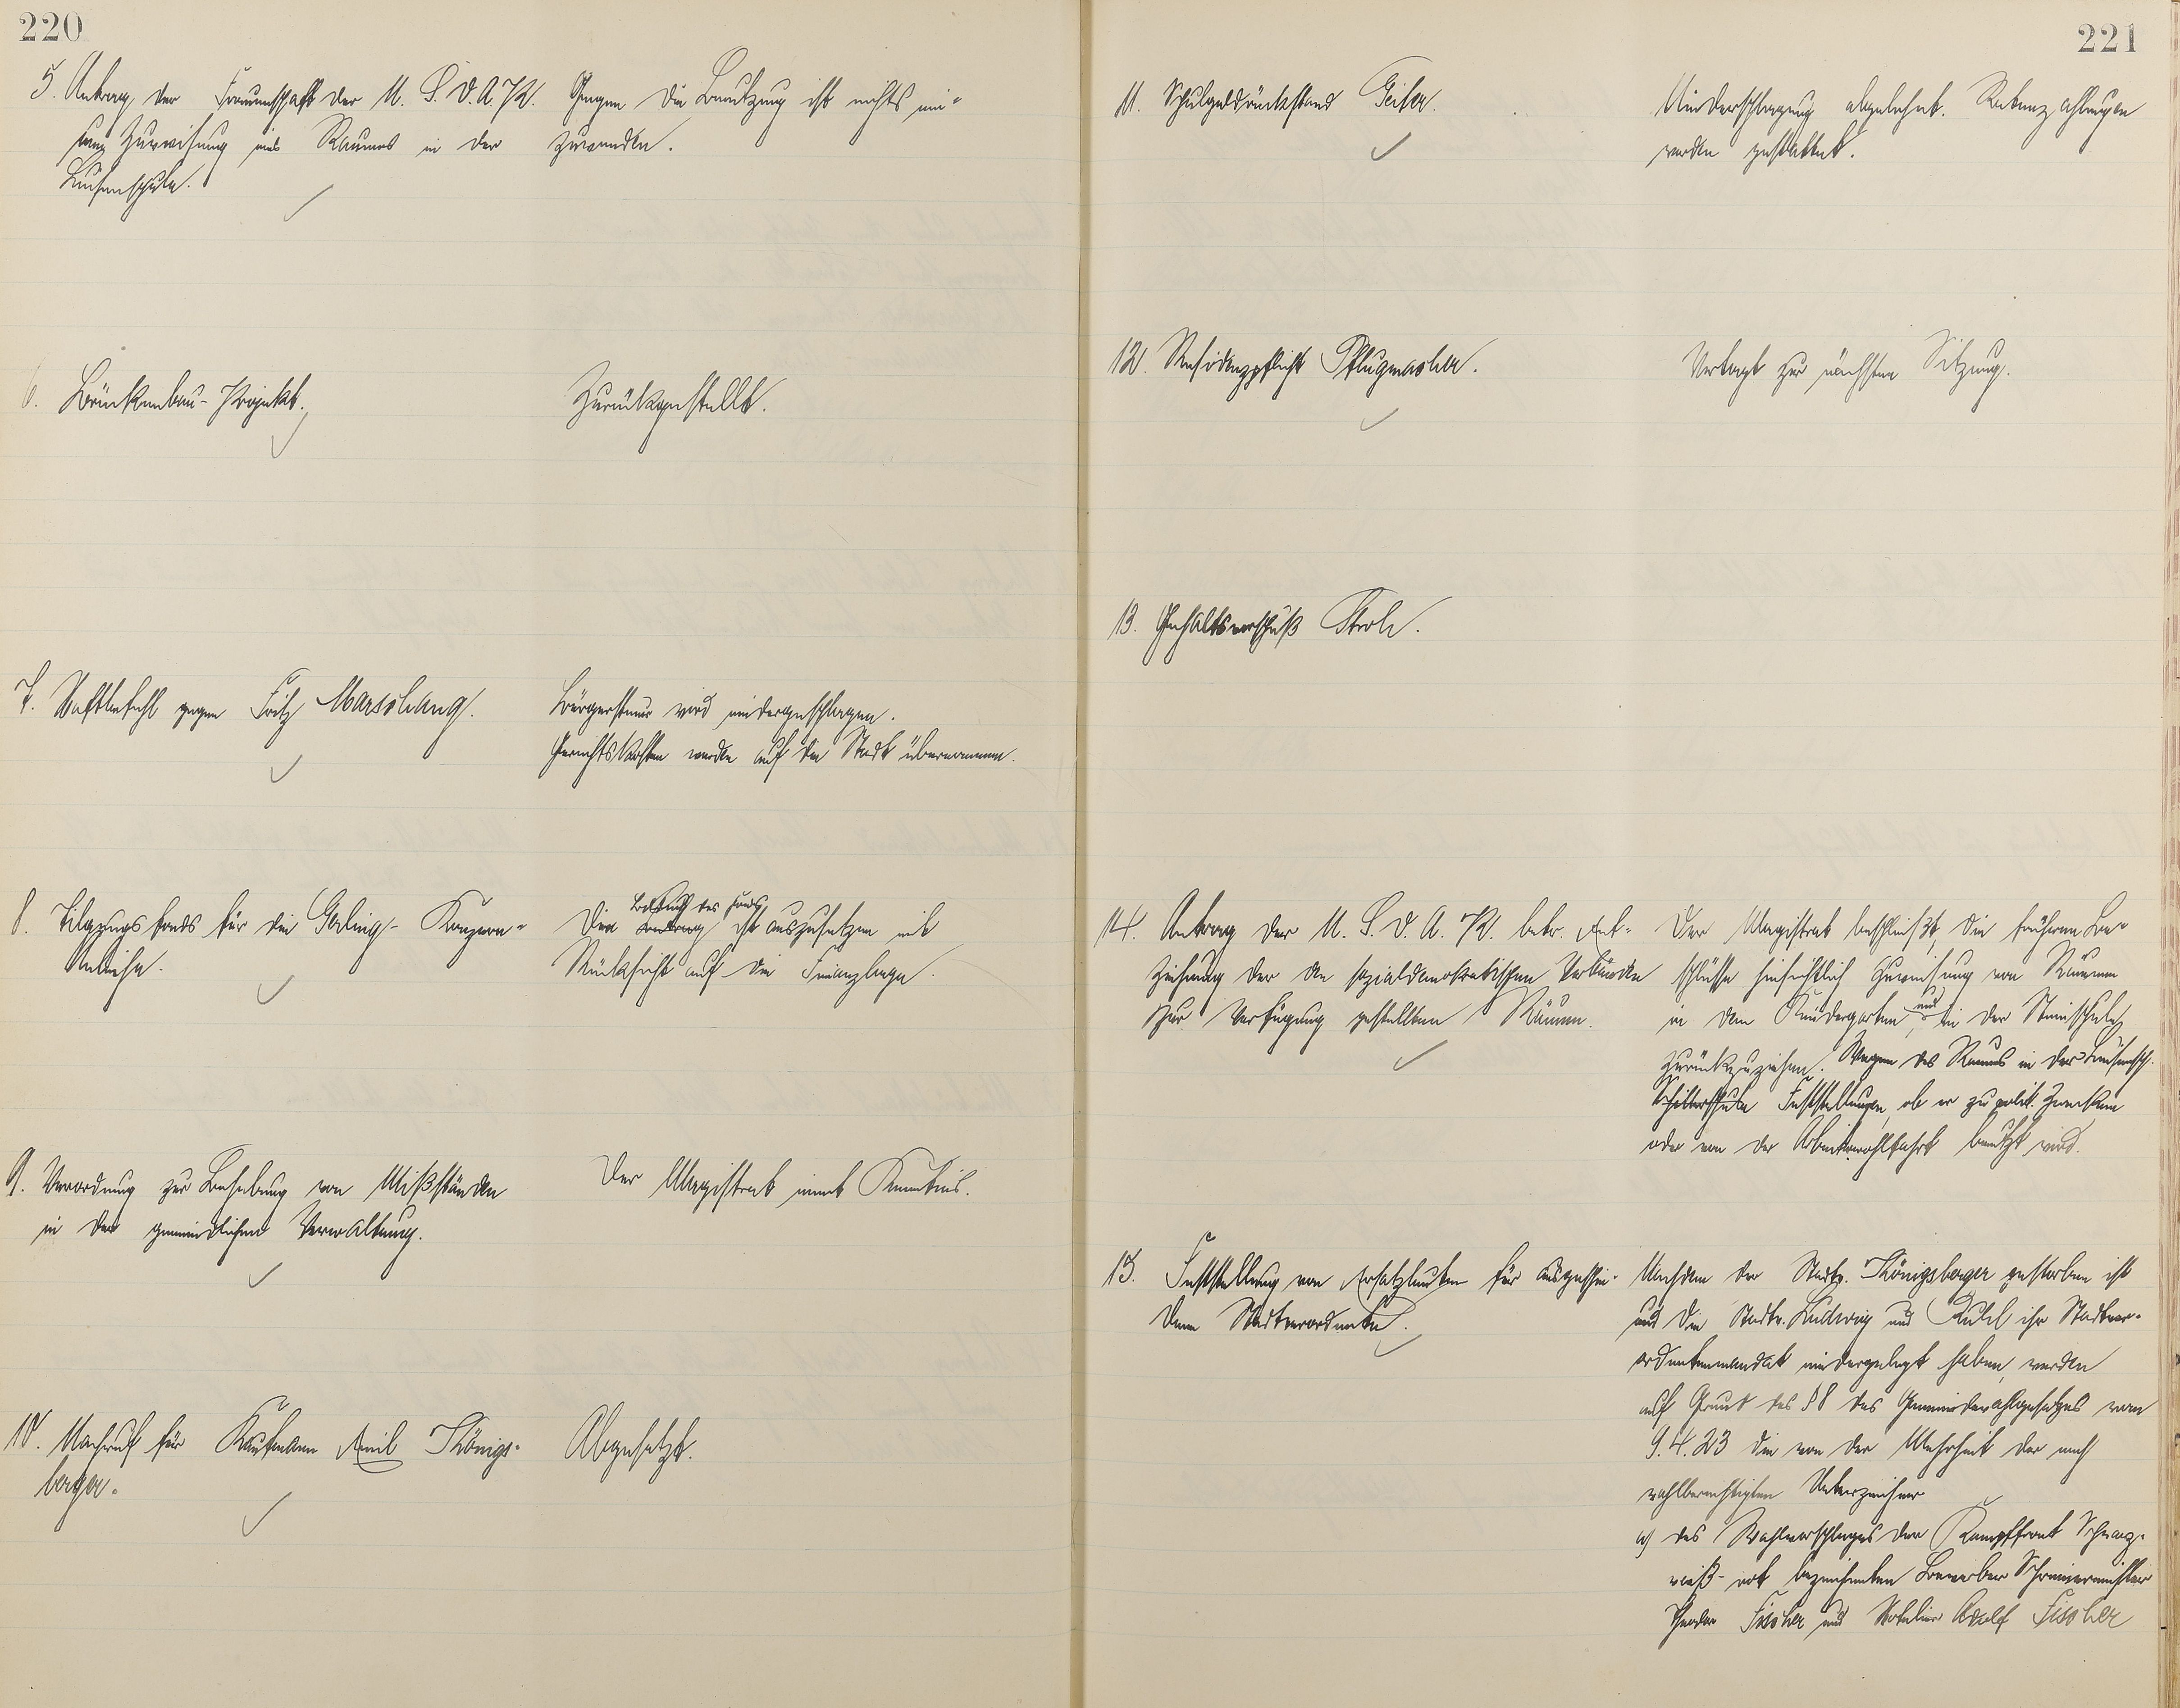 220
5. Antrag der Frauenschaft der N.S.D.A.P.
wg. Zuweisung eines Raumes in der
Luisenschule.
Gegen die Benutzung ist nichts ein-
zuwenden.
6. Brückenbau-Projekt.
Zurückgestellt.
7. Haftbefehl gegen Fritz Marschang.
Bürgersteuer wird niedergeschlagen.
Gerichtskosten werden auf die Stadt übernommen.
8. Tilgungsfonds für die Gerling-Konzern-
Anleihe.
des Fonds
Die ist auszusetzen mit
Rücksicht auf die Finanzlage.
9. Verordnung zur Behebung von Mißständen
in der gemeindlichen Verwaltung.
Der Magistrat nimmt Kenntnis.
10. Nachruf für Kaufmann Emil Königs-
berger.
Abgesetzt.
221
11. Schulgeldrückstand Geiser.
Niederschlagung abgelehnt. Ratenzahlungen
werden gestattet.
12. Residenzpflicht Pflugmacher.
Vertagt zur nächsten Sitzung.
13. Gehaltsvorschuß Stroh.
14. Antrag der N.S.D.A.P. betr. Ent-
ziehung der den sozialdemokratischen Verbänden
zur Verfügung gestellten Räume.
Der Magistrat beschließt, die früheren Be-
schlüsse hinsichtlich Zuweisung von Räumen
in dem Kindergarten und in der Steinschule
zurückzuziehen. Wegen des Raumes in der Luisensch.
Schillerschule Feststellungen, ob er zu polit. Zwecken
oder von der Arbeiterwohlfahrt benutzt wird.
15. Feststellung von Ersatzleuten für ausgeschie-
dene Stadtverordnete.
Nachdem der Stadtv. Königsberger gestorben ist
und die Stadtv. Ludwig und Ruhl ihr Stadtver-
ordnetenmandat niedergelegt haben, werden
auf Grund des § 8 des Gemeindewahlgesetzes vom
9.4.23 die von der Mehrheit der noch
wahlberechtigten Unterzeichner
a) des Wahlvorschlages der Kampffront Schwarz-
weiß-rot bezeichneten Bewerber Schreinermeister
Theodor Fischer und Hotelier Adolf Fischer